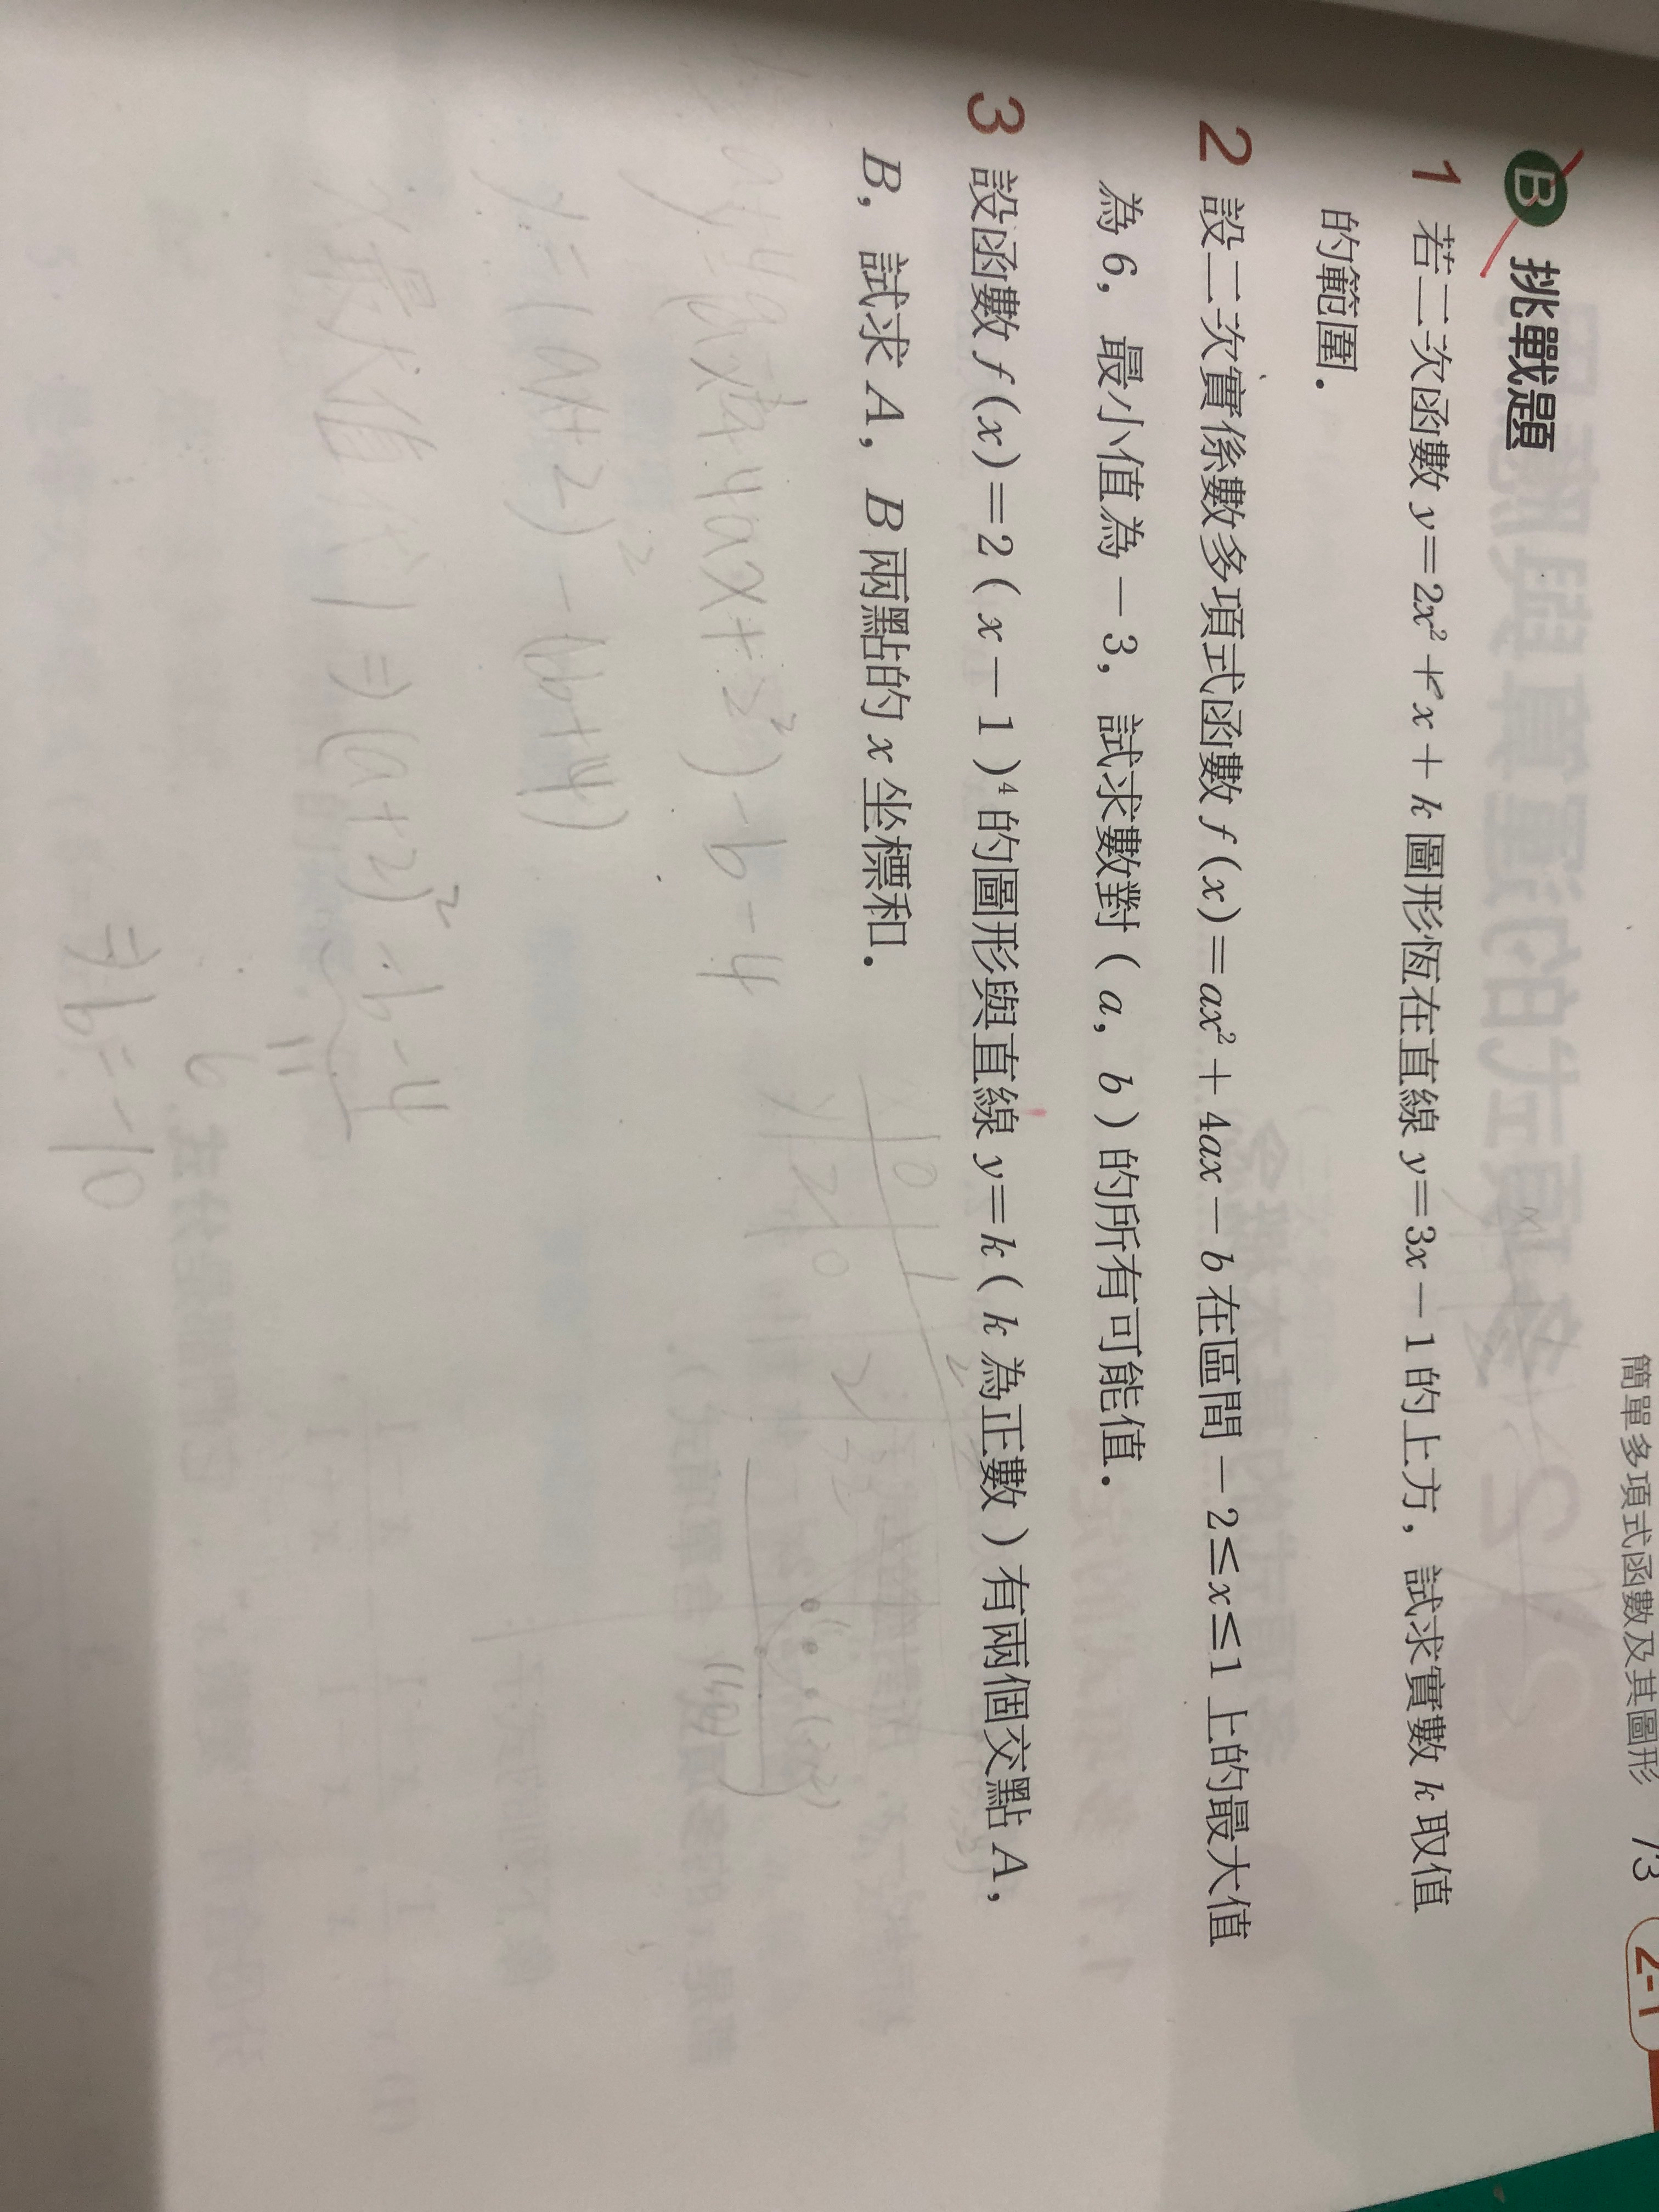 簡單多項式函數及其圖形 73 2-1
B 挑戰題
1 若二次函數 y=2x²+x+k 圖形恆在直線 y=3x-1 的上方，試求實數 k 取值
的範圍．
2 設二次實係數多項式函數 f(x)=ax²+4ax-b 在區間 -2≤x≤1 上的最大值
為 6，最小值為 -3，試求數對 (a, b) 的所有可能值．
3 設函數 f(x)=2(x-1)⁴ 的圖形與直線 y=k (k 為正數) 有兩個交點 A，
B，試求 A，B 兩點的 x 坐標和．
x 0 1 2
y 2 0 2
(1,0)
y=(ax+2)²-(b+4)
x最大值代1⇒(a+2)²-b-4
=
6
⇒b=-10